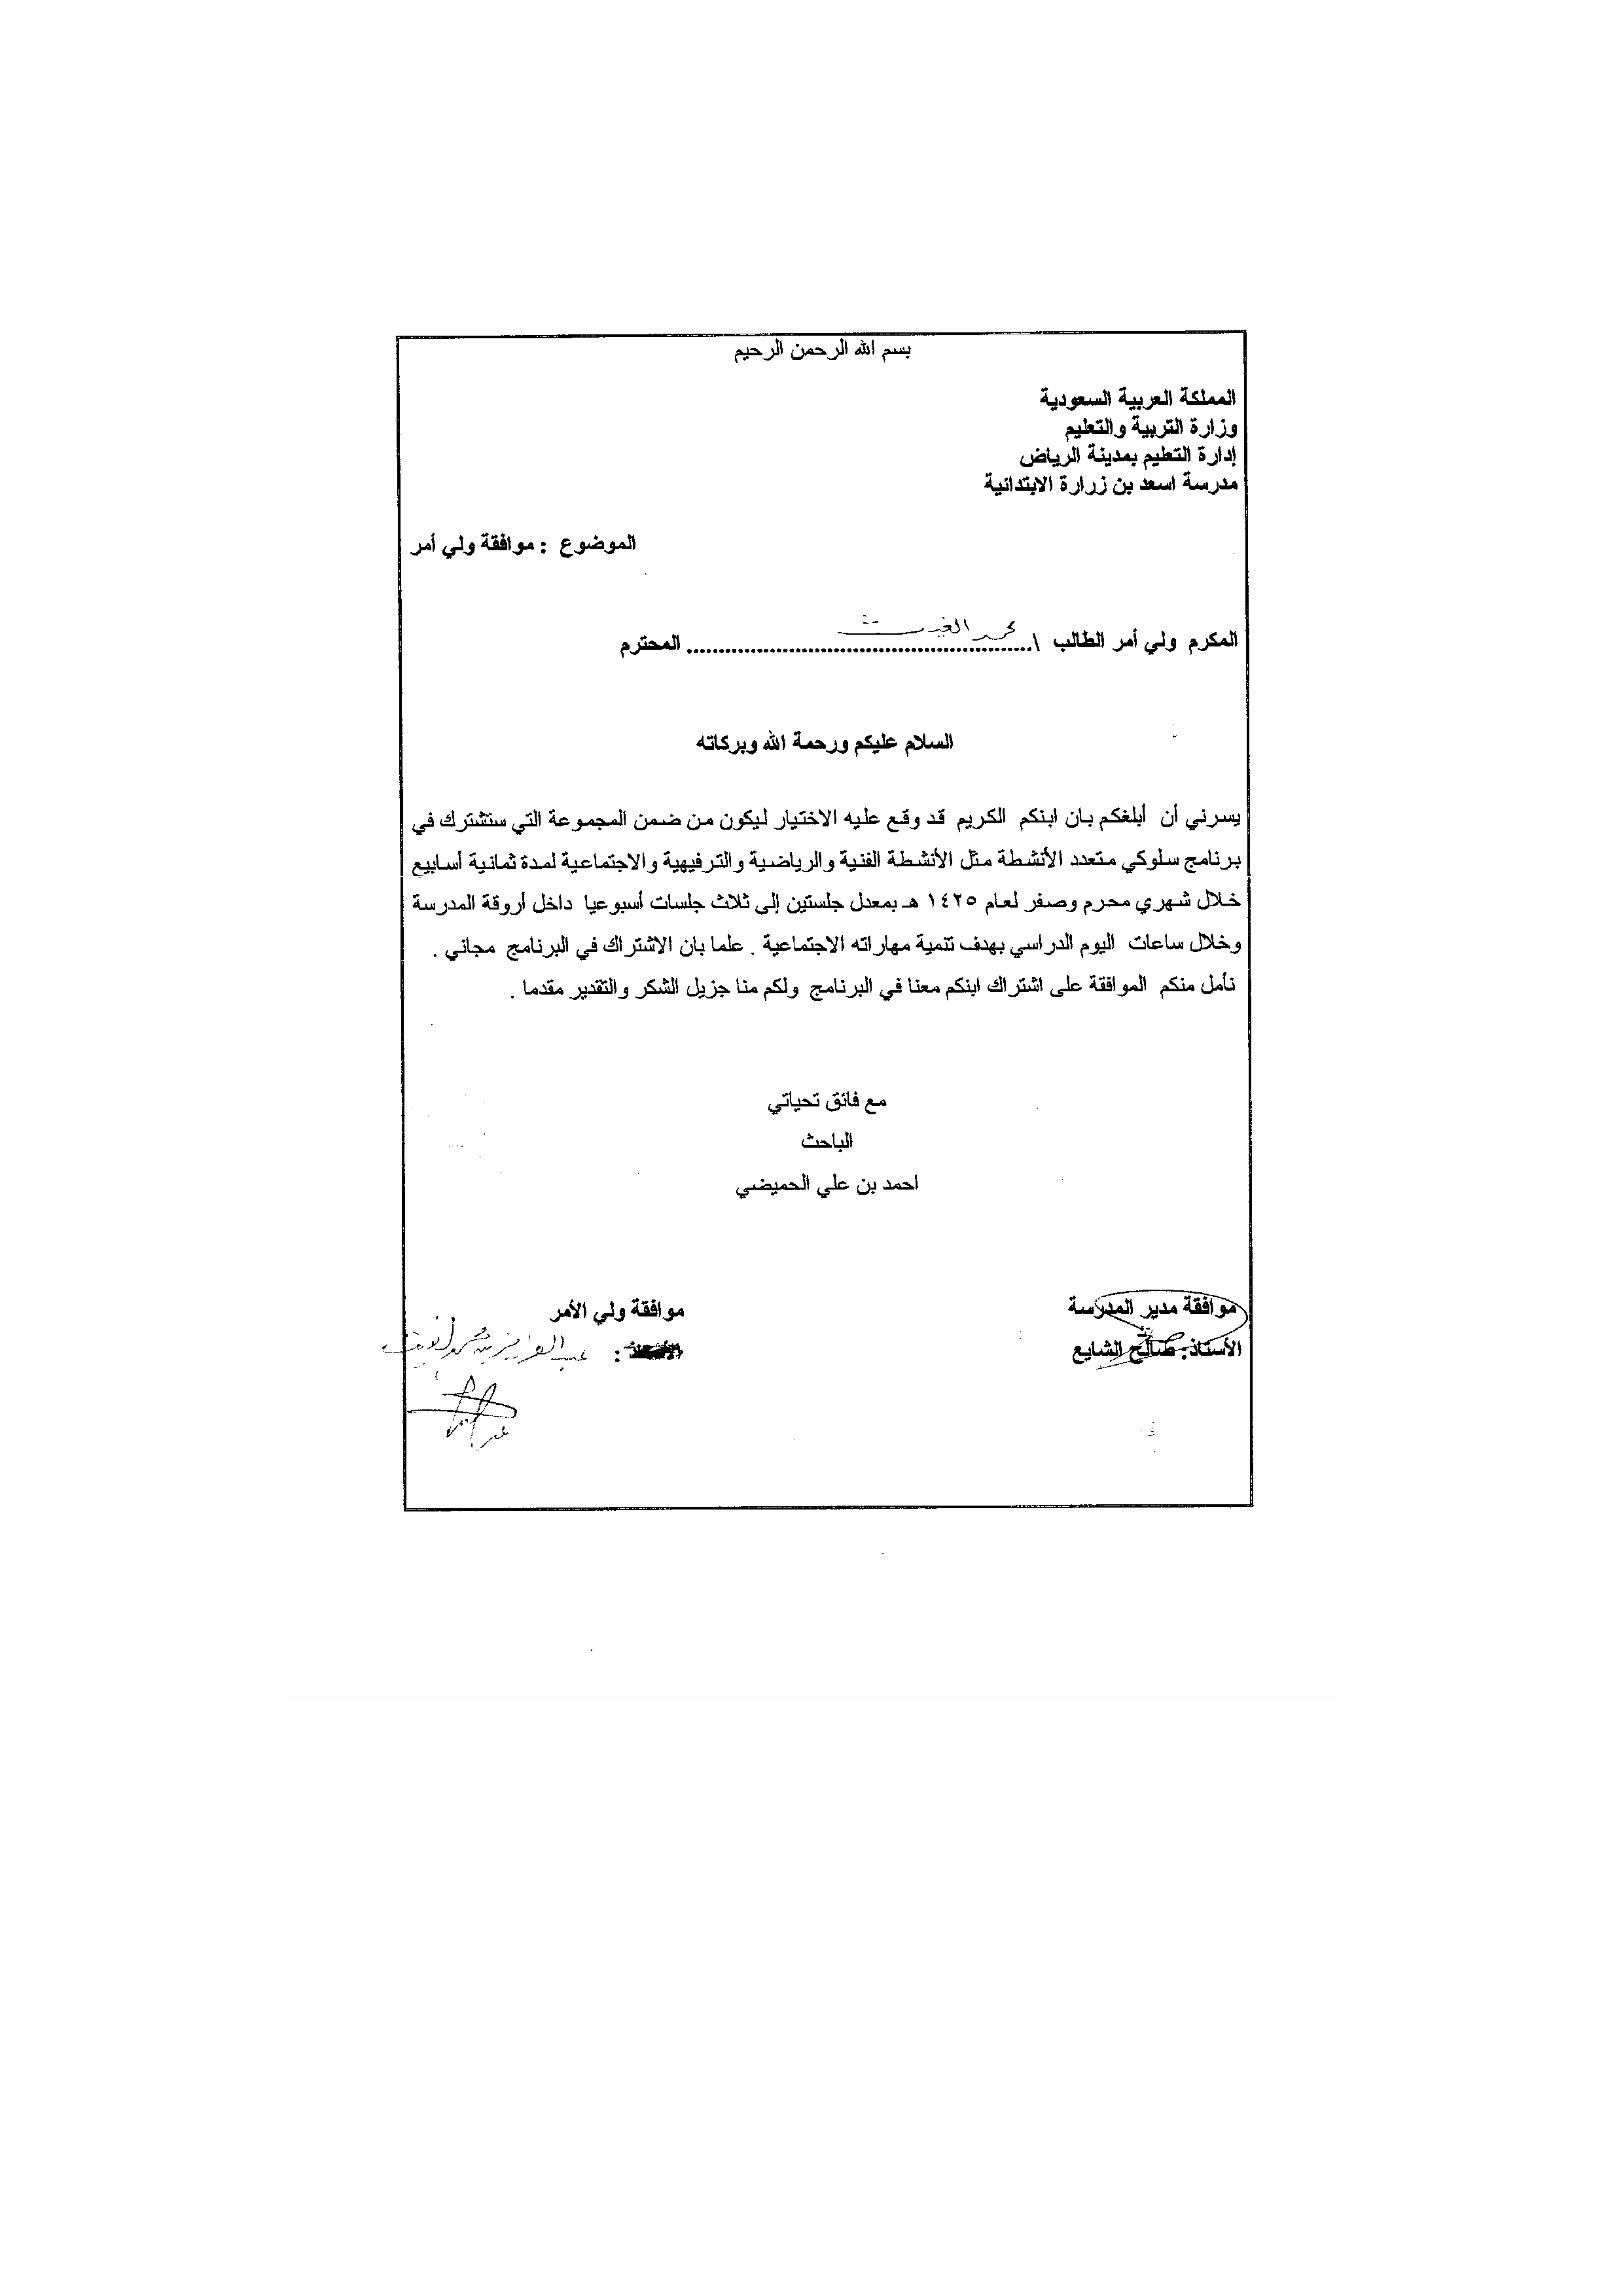 بسم الله الرحمن الرحيم
المملكة العربية السعودية
وزارة التربية والتعليم
إدارة التعليم بمدينة الرياض
مدرسة اسعد بن زرارة الابتدائية
الموضوع : موافقة ولي أمر
المكرم ولي أمر الطالب \ محمد الغيث المحترم
السلام عليكم ورحمة الله وبركاته
يسرني أن أبلغكم بان ابنكم الكريم قد وقع عليه الاختيار ليكون من ضمن المجموعة التي ستشترك في
برنامج سلوكي متعدد الأنشطة مثل الأنشطة الفنية والرياضية والترفيهية والاجتماعية لمدة ثمانية أسابيع
خلال شهري محرم وصفر لعام ١٤٢٥ هـ بمعدل جلستين إلى ثلاث جلسات أسبوعيا داخل أروقة المدرسة
وخلال ساعات اليوم الدراسي بهدف تنمية مهاراته الاجتماعية . علما بان الاشتراك في البرنامج مجاني .
نأمل منكم الموافقة على اشتراك ابنكم معنا في البرنامج ولكم منا جزيل الشكر والتقدير مقدما .
مع فائق تحياتي
الباحث
احمد بن علي الحميضي
موافقة مدير المدرسة موافقة ولي الأمر
الأستاذ: صالح الشايع : عبد العزيز بن محمد الغيث